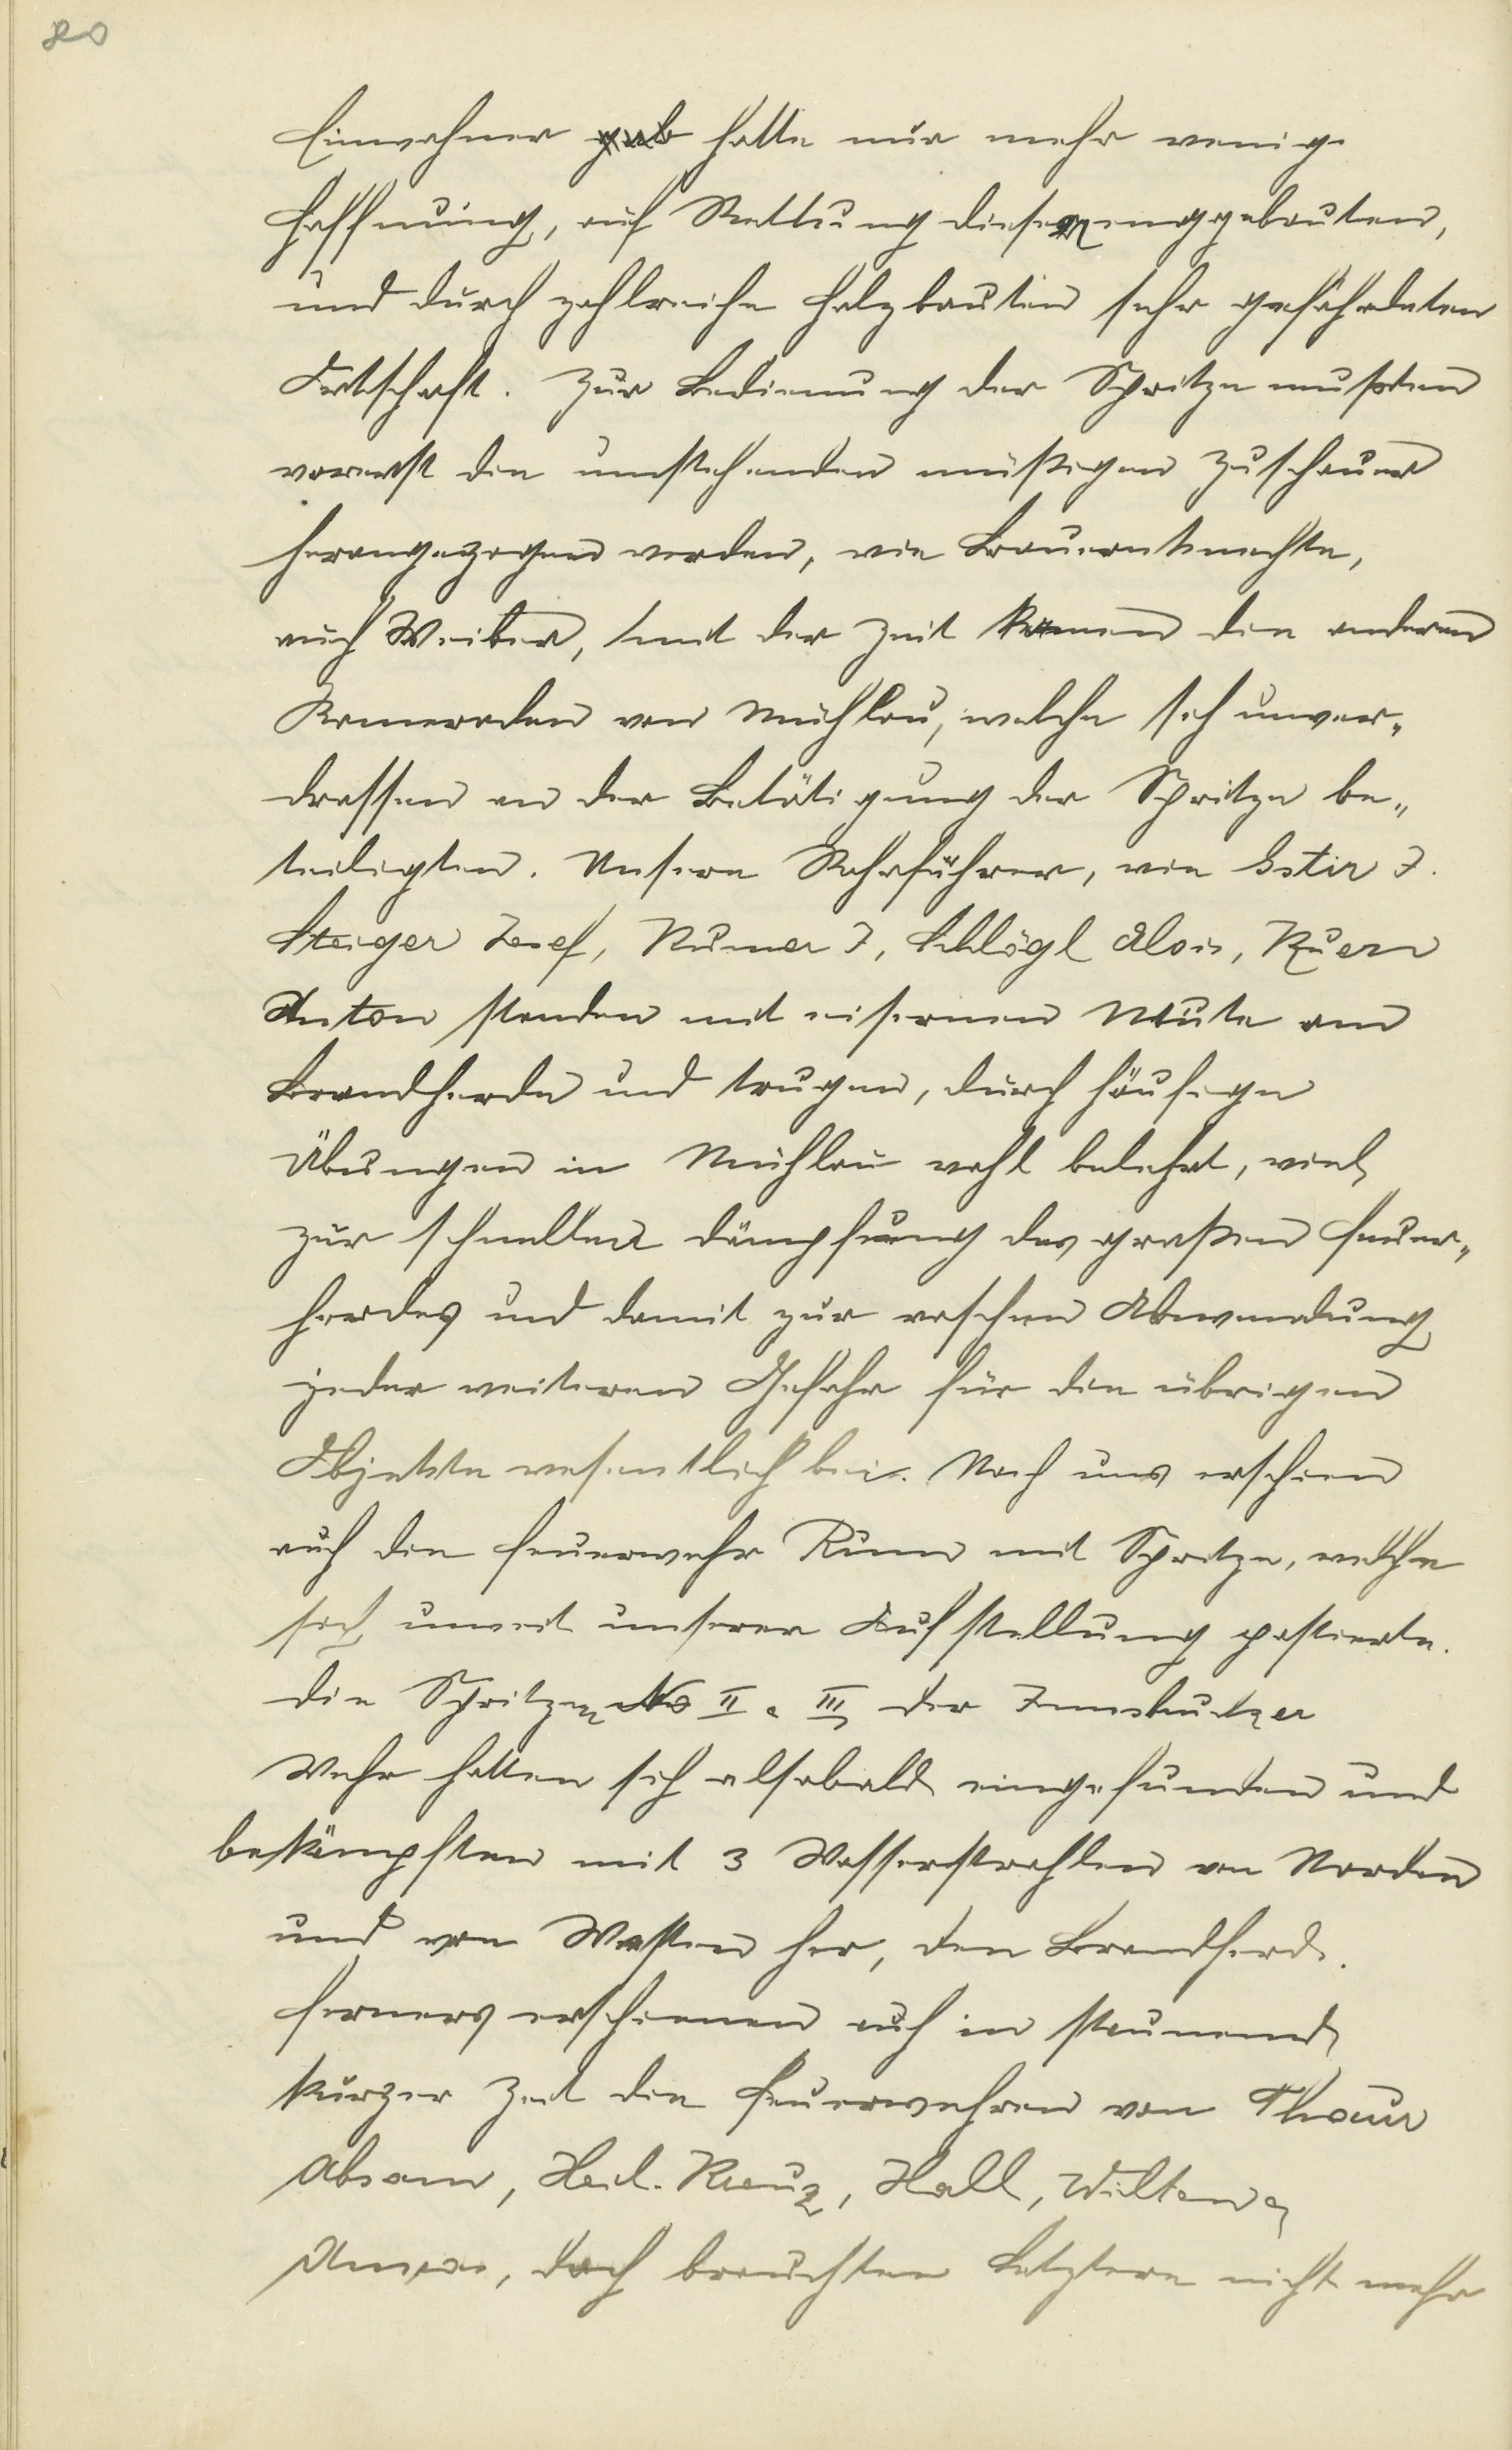 80
Einwohner gab hatte nur mehr wenig
Hoffnung, auf Rettung dieser enggebauten,
und durch zahlreiche Holzbauten sehr gefährdeten
Ortschaft. Zur Bedienung der Spritze mußten
vorerst die umstehenden müßigen Zuschauer
herangezogen werden, wie Bauernknechte,
auch Weiber, mit der Zeit kamen die anderen
Kameraden von Mühlau, welche sich unver„
drossen an der Betätigung der Spritze be„
teiligten. Unsere Rohrführer, wie Gstir J.
Steiger Josef, Rumer J, Schlögl Alois, Kuen
Anton standen mit eisernem Mute am
Brandherde und trugen, durch häufige
Übungen in Mühlau wohl belehrt, viel
zur schnellen Dämpfung des großen Feuer„
herdes und damit zur raschen Abwendung
jeder weiteren Gefahr für die übrigen
Objekte wesentlich bei. Nach uns erschien
auch die Feuerwehr Rum mit Spritze, welche
sich unweit unserer Aufstellung postierte.
Die Spritzen No II & III der Innsbrucker
Wehr hatten sich alsobald eingefunden und
bekämpften mit 3 Wasserstrahlen von Norden
und von Westen her, den Brandherd.
Ferners erschienen auch in staunend
kurzer Zeit die Feuerwehren von Thaur
Absam, Heil. Kreuz, Hall, Wilten &
Amras, doch brauchten Letztere nicht mehr